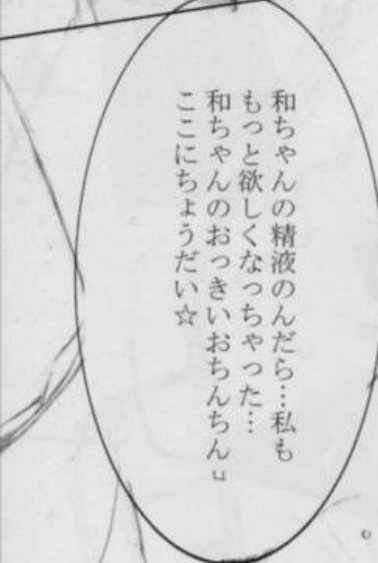 和ちゃんの精液のんだら…私も
もっと欲しくなっちゃった…
和ちゃんのおっきいおちんちん
ここにちょうだい☆